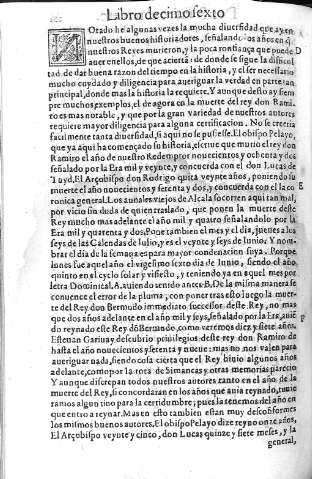 Libro decimo sexto
NOtado he algunas vezes la mucha diuersidad que ay en
nuestros buenos historiadores, señalando los años en q̃
nuestros Reyes murieron, y la poca confiança que puede D
auer en ellos, de que acierta: de donde se sigue la dificul
tad de dar buena razon del tiempo en la historia, y el ser necessario
mucho cuydado y diligencia para aueriguar la verdad en parte tan
principal, donde mas la historia la requiere. Y aunque desto ay siem
pre muchos exemplos, el de agora en la muerte del rey don Rami-
ro es mas notable, y que por la gran variedad de nuestros autores
requiere mayor diligencia para alguna certificacion. No se creeria
facilmente tanta diuersidad, si aqui no se pusiesse. El obispo Pelayo,
que ya aqui ha començado su historia, escriue que murio el rey don
Ramiro el año de nuestro Redemptor nouecientos y ochenta y dos
señalado por la Era mil y veynte, y concuerda con el don Lucas de
Tuyd. El Arçobispo don Rodrigo quita veynte años, poniendo su
muerte el año nouecientos y setenta y dos, y concuerda con el la co E
ronica general. Los annales viejos de Alcala socorren aqui tan mal,
por vicio sin duda de quien traslado, que ponen la muerte deste
Rey mucho mas adelante el año mil y quatro señalandolo por la
Era mil y quarenta y dos. Pone tambien el mes y el dia, jueues a los
seys de las Calendas de Iulio, y es el veynte y seys de Iunio. Y nom-
brar el dia de la semana es para mayor condenacion suya. Porque
lunes fue aquel año el vigesimo sexto dia de Iunio, siendo el año
quinto en el cyclo solar y visiesto, y teniendo ya en aquel mes por
letra Dominical, A. auiendo sentido antes B. De la misma manera se
conuence el error de la pluma, con poner tras esto luego la muer-
te del Rey don Bermudo immediato successor deste Rey, no mas
que dos años adelante en el año mil y seys, señalado por la Era, auiẽ
do reynado este Rey dõ Bermudo, como veremos diez y siete años.
Esteuan Gariuay, descubrio priuilegios deste rey don Ramiro de
hasta el año nouecientos y setenta y nueue: mas no nos valen para
aueriguar nada, siendo cosa cierta que el Rey biuio algunos años
adelante, como por la toca de Simancas y otras memorias parecio
Y aunque discrepan todos nuestros autores tanto en el año de la
muerte del Rey, si concordaran en los años que auia reynado, tuuie
ramos algun tino para la certidumbre, pues la tenemos del año en
que entro a reynar. Mas en esto tambien estan muy desconformes
los mismos buenos autores. El obispo Pelayo dize reyno onze años,
El Arçobispo veynte y cinco, don Lucas quinze y siete meses, y la
general,